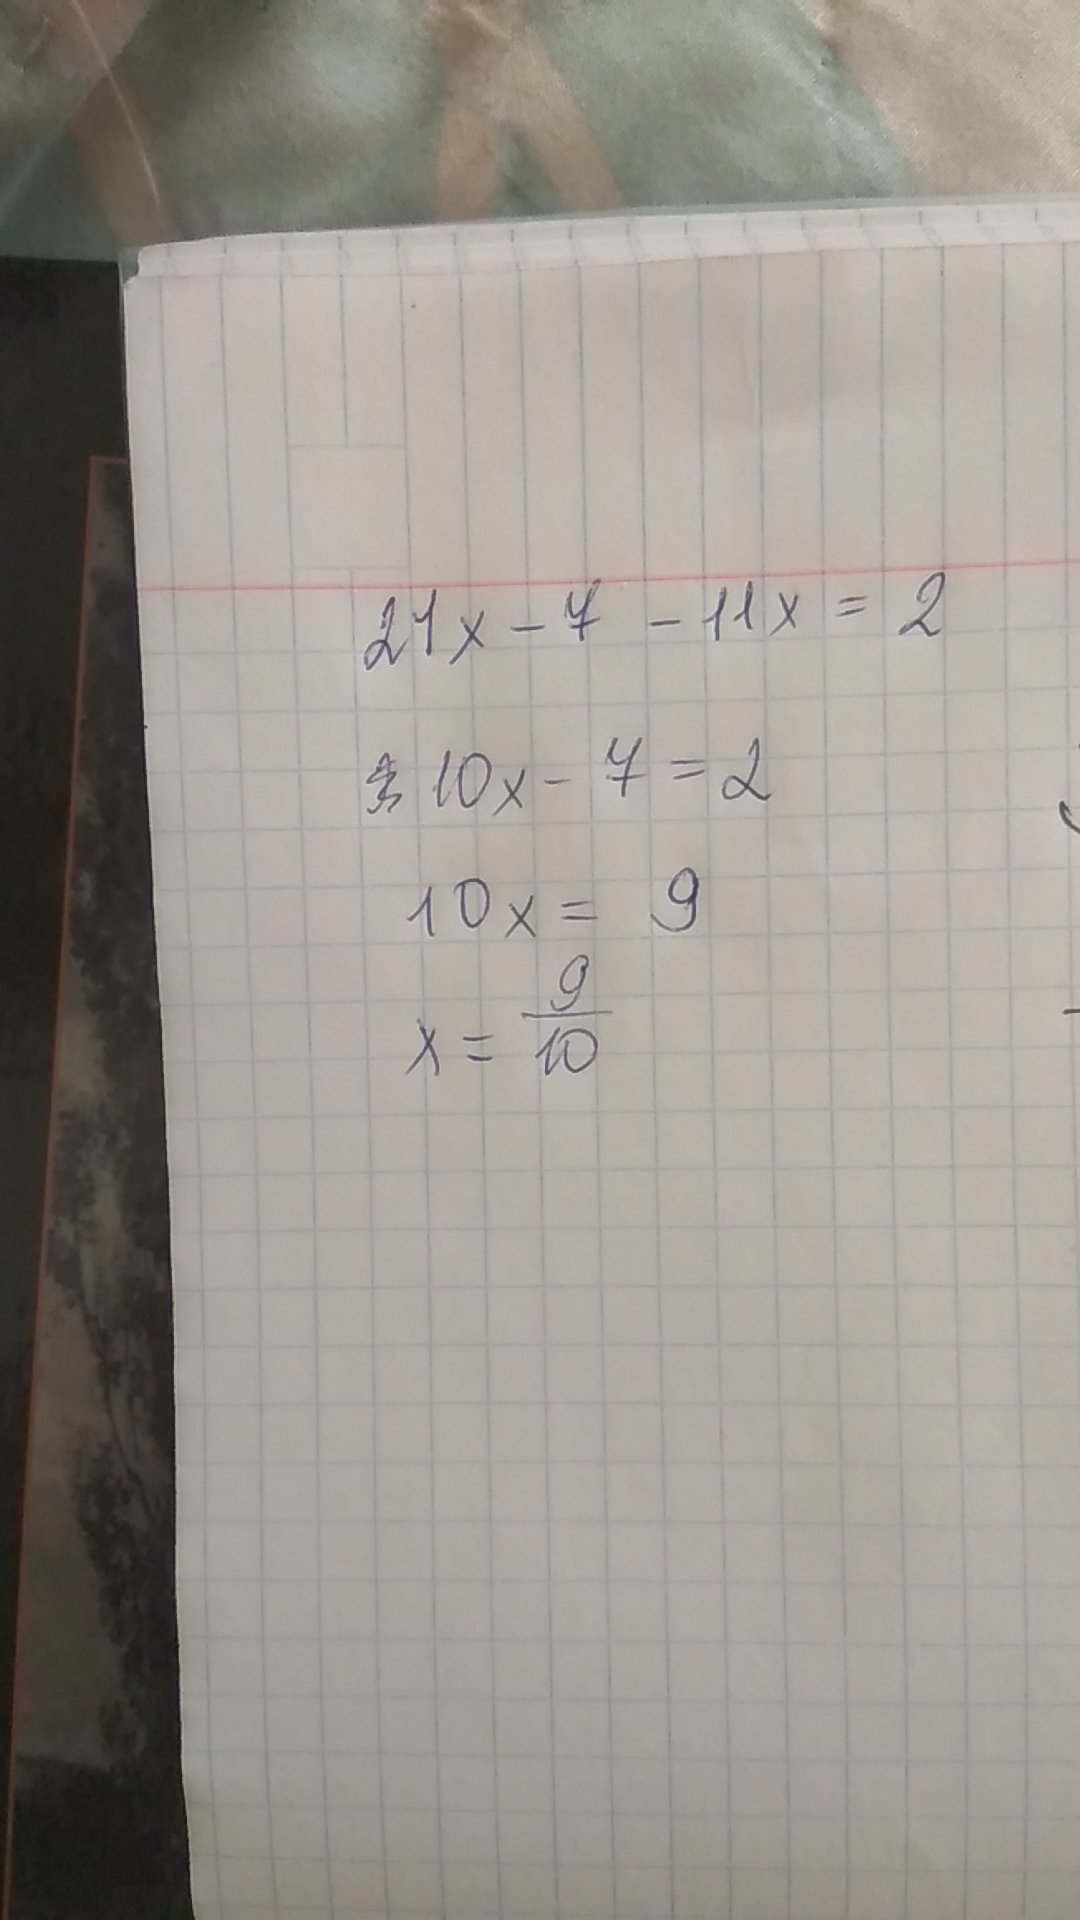 21x - 7 - 11x = 2
10x - 7 = 2
10x = 9
x = 9/10